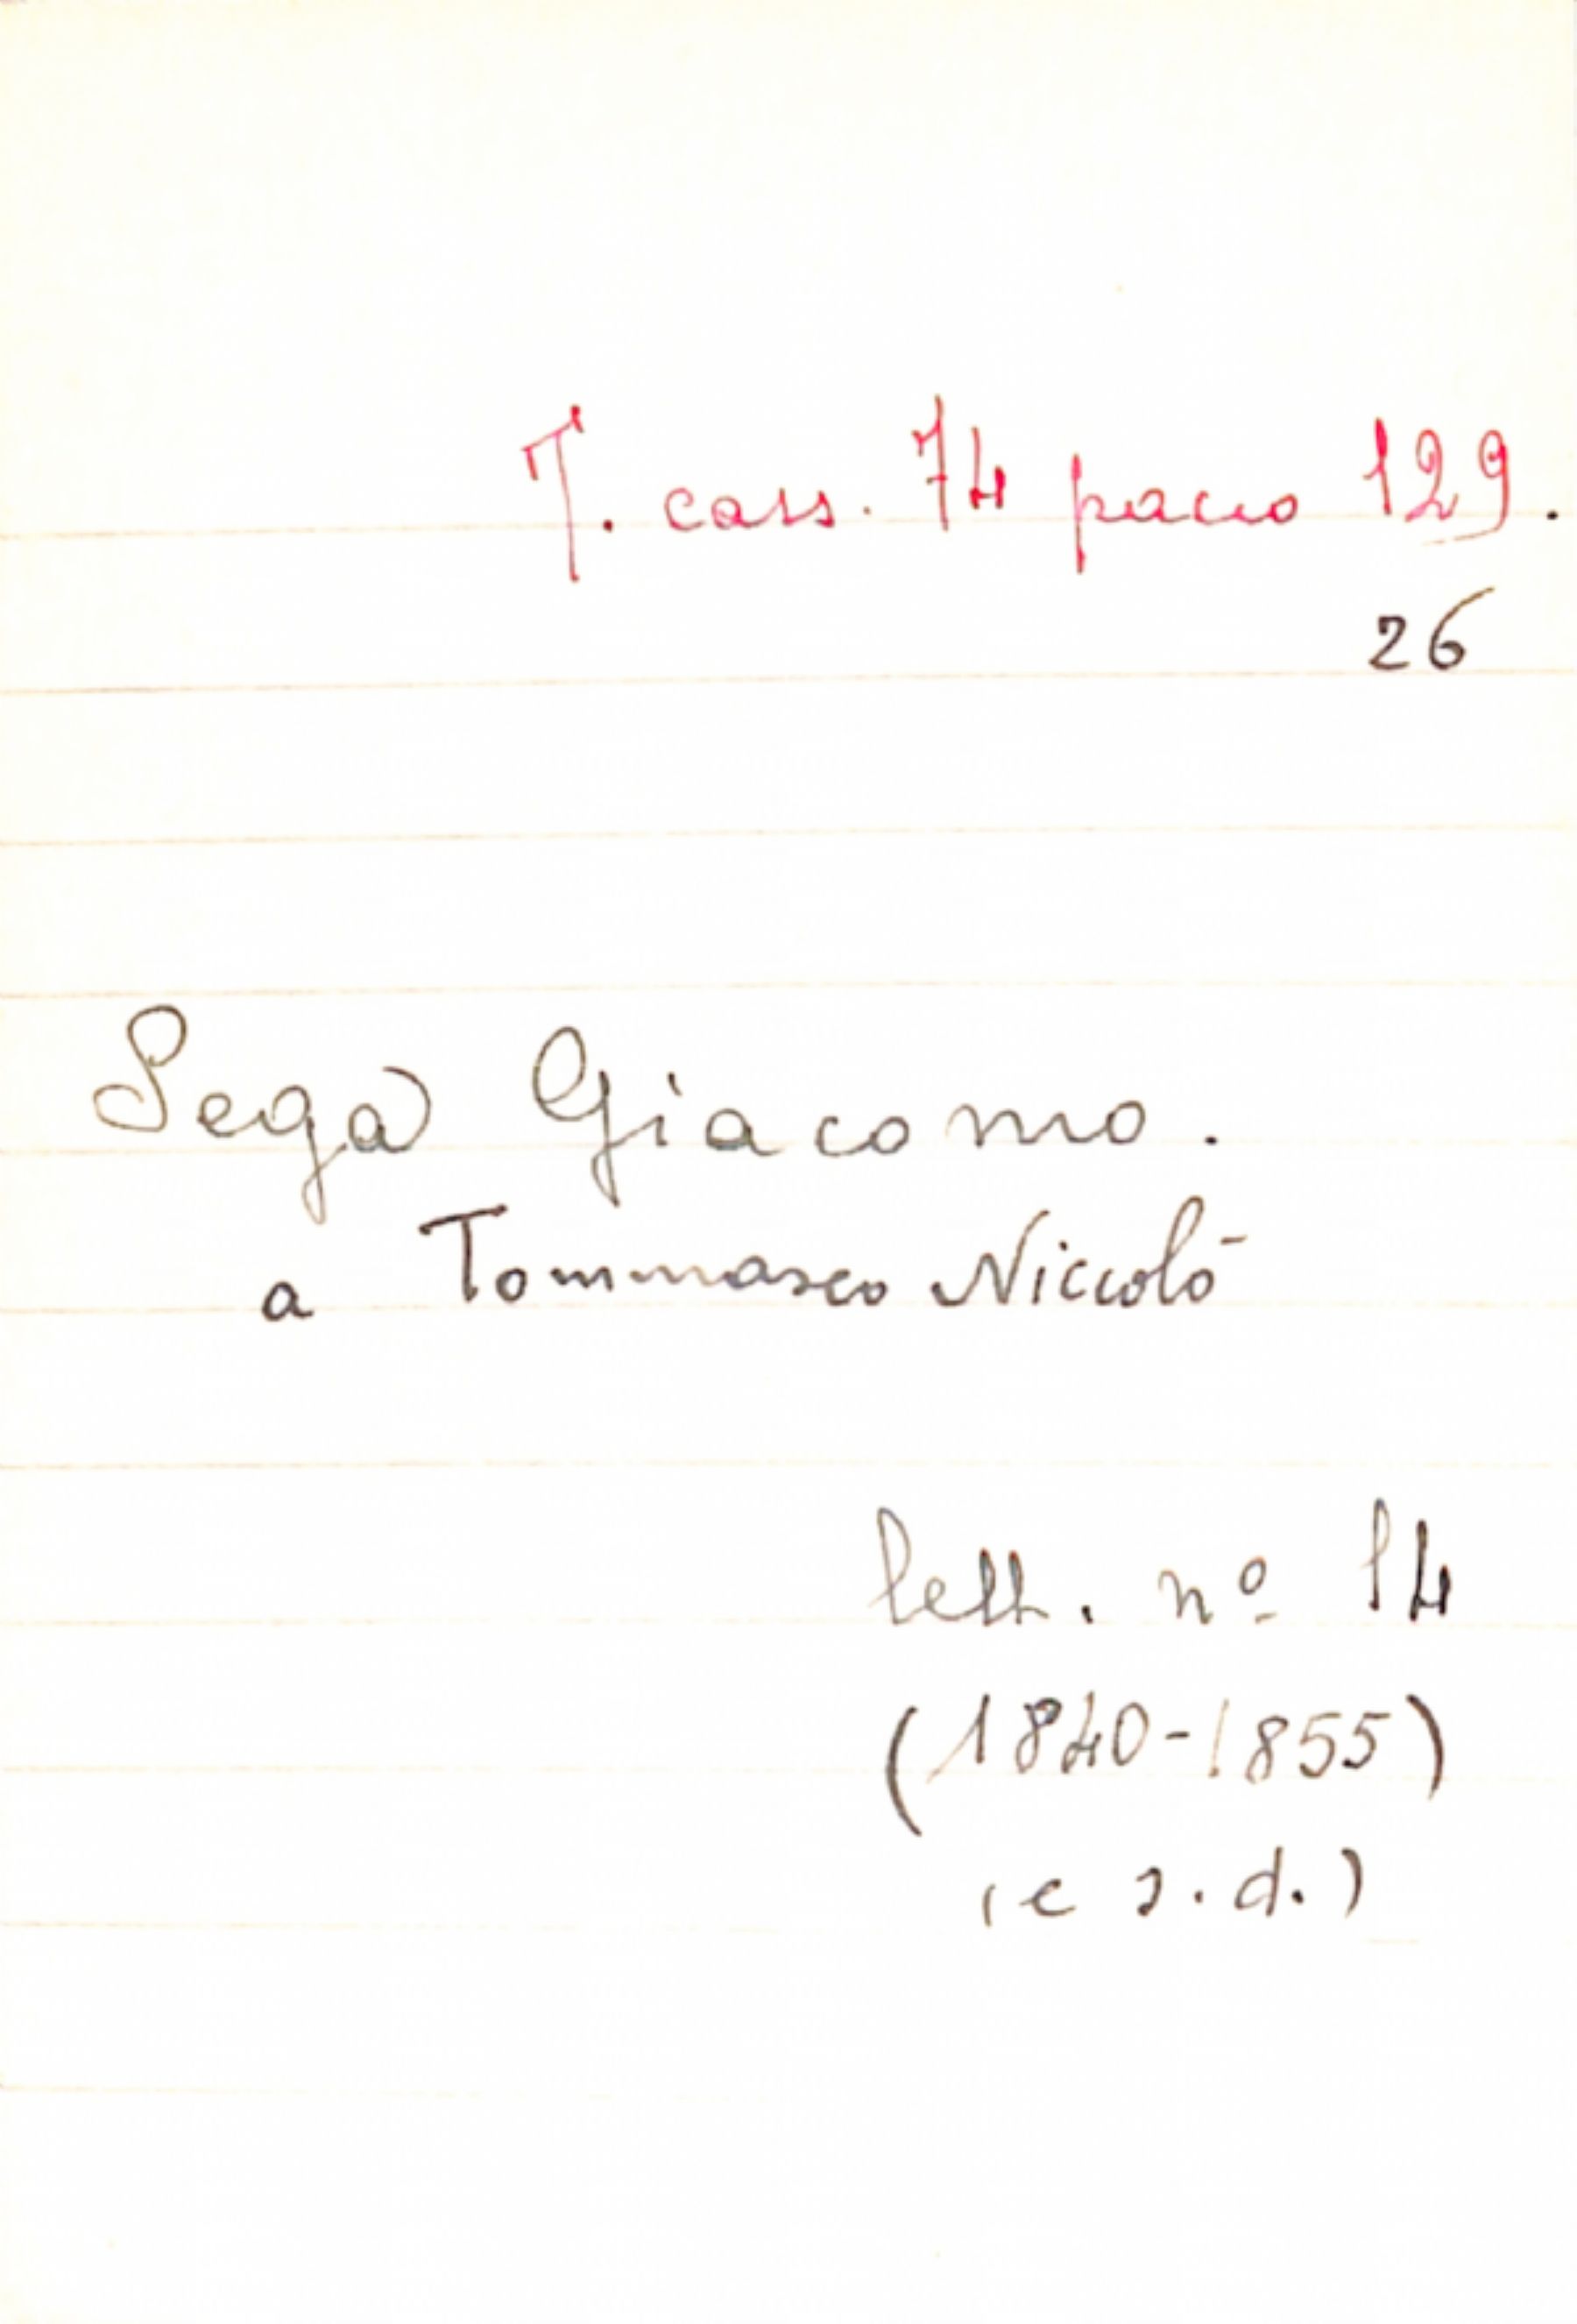 T. cass. 74 pacco 129.
26
Sega Giacomo.
a Tommaseo Niccolò
lett. nº 14
(1840-1855)
(e s.d.)